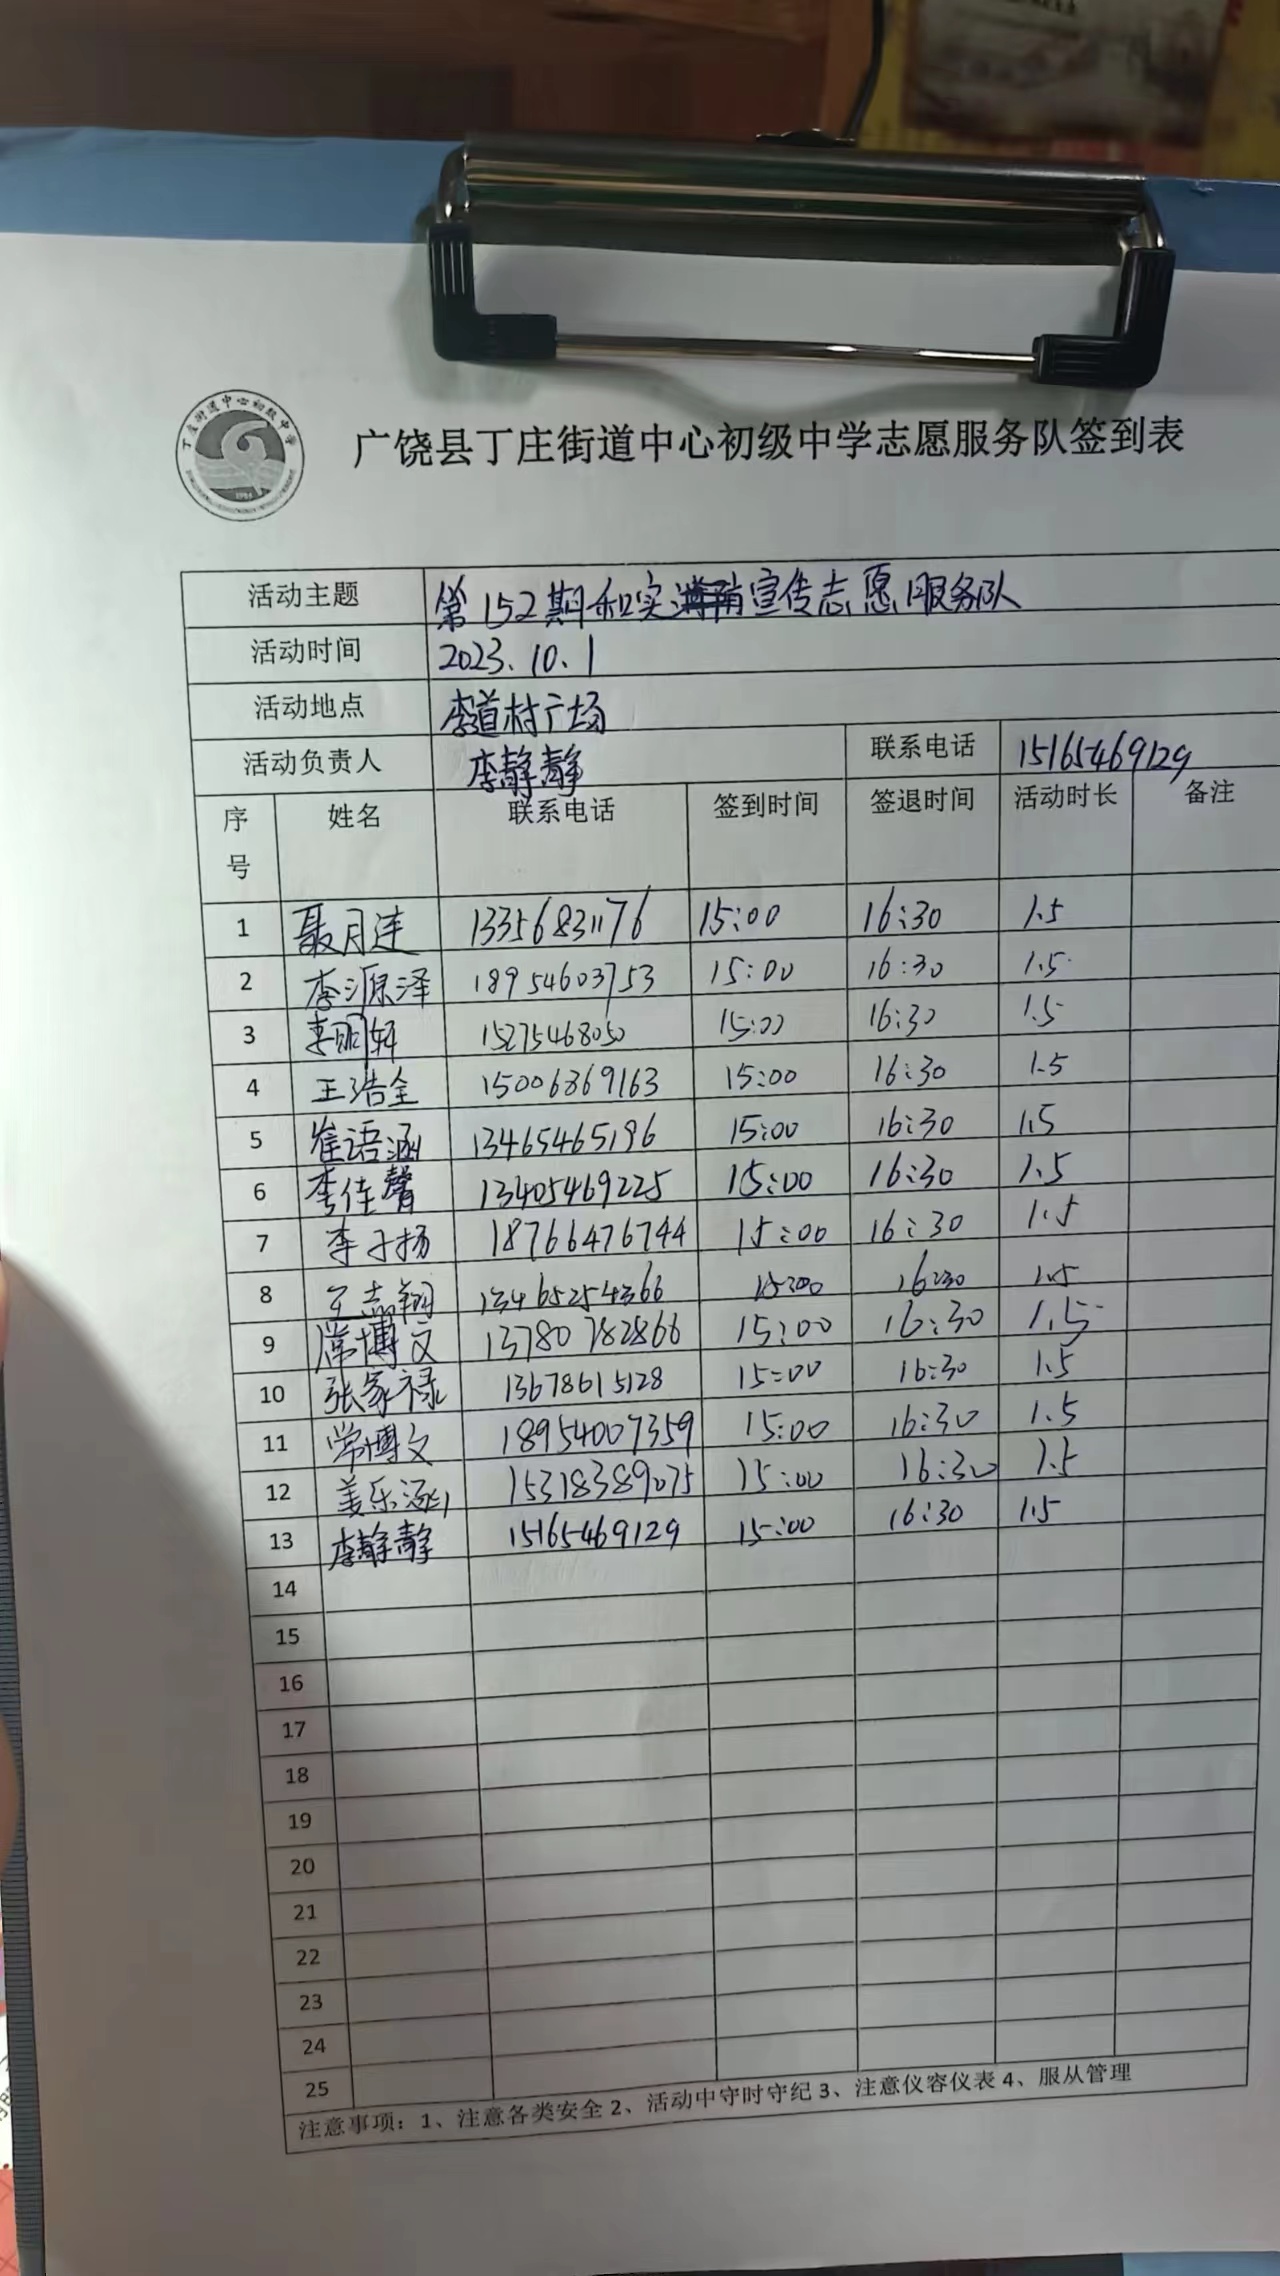 丁庄街道中心初级中学
1984
广饶县丁庄街道中心初级中学志愿服务队签到表
活动主题 第152期和实 宣传志愿服务队
活动时间 2023.10.1
活动地点 李道村广场
活动负责人 李静静 联系电话 15165469129
序号 姓名 联系电话 签到时间 签退时间 活动时长 备注
1 聂月连 13356831176 15:00 16:30 1.5
2 李源泽 18954603753 15:00 16:30 1.5
3 李明轩 15275468050 15:00 16:30 1.5
4 王浩全 15006869163 15:00 16:30 1.5
5 崔语涵 13465465196 15:00 16:30 1.5
6 李佳馨 13405469225 15:00 16:30 1.5
7 李子扬 18766476744 15:00 16:30 1.5
8 王志翔 13465254366 15:00 16:30 1.5
9 席博文 13780782866 15:00 16:30 1.5
10 张家禄 13678615128 15:00 16:30 1.5
11 常博文 18954007359 15:00 16:30 1.5
12 姜乐涵 15318389075 15:00 16:30 1.5
13 李静静 15165469129 15:00 16:30 1.5
14
15
16
17
18
19
20
21
22
23
24
25
注意事项：1、注意各类安全 2、活动中守时守纪 3、注意仪容仪表 4、服从管理